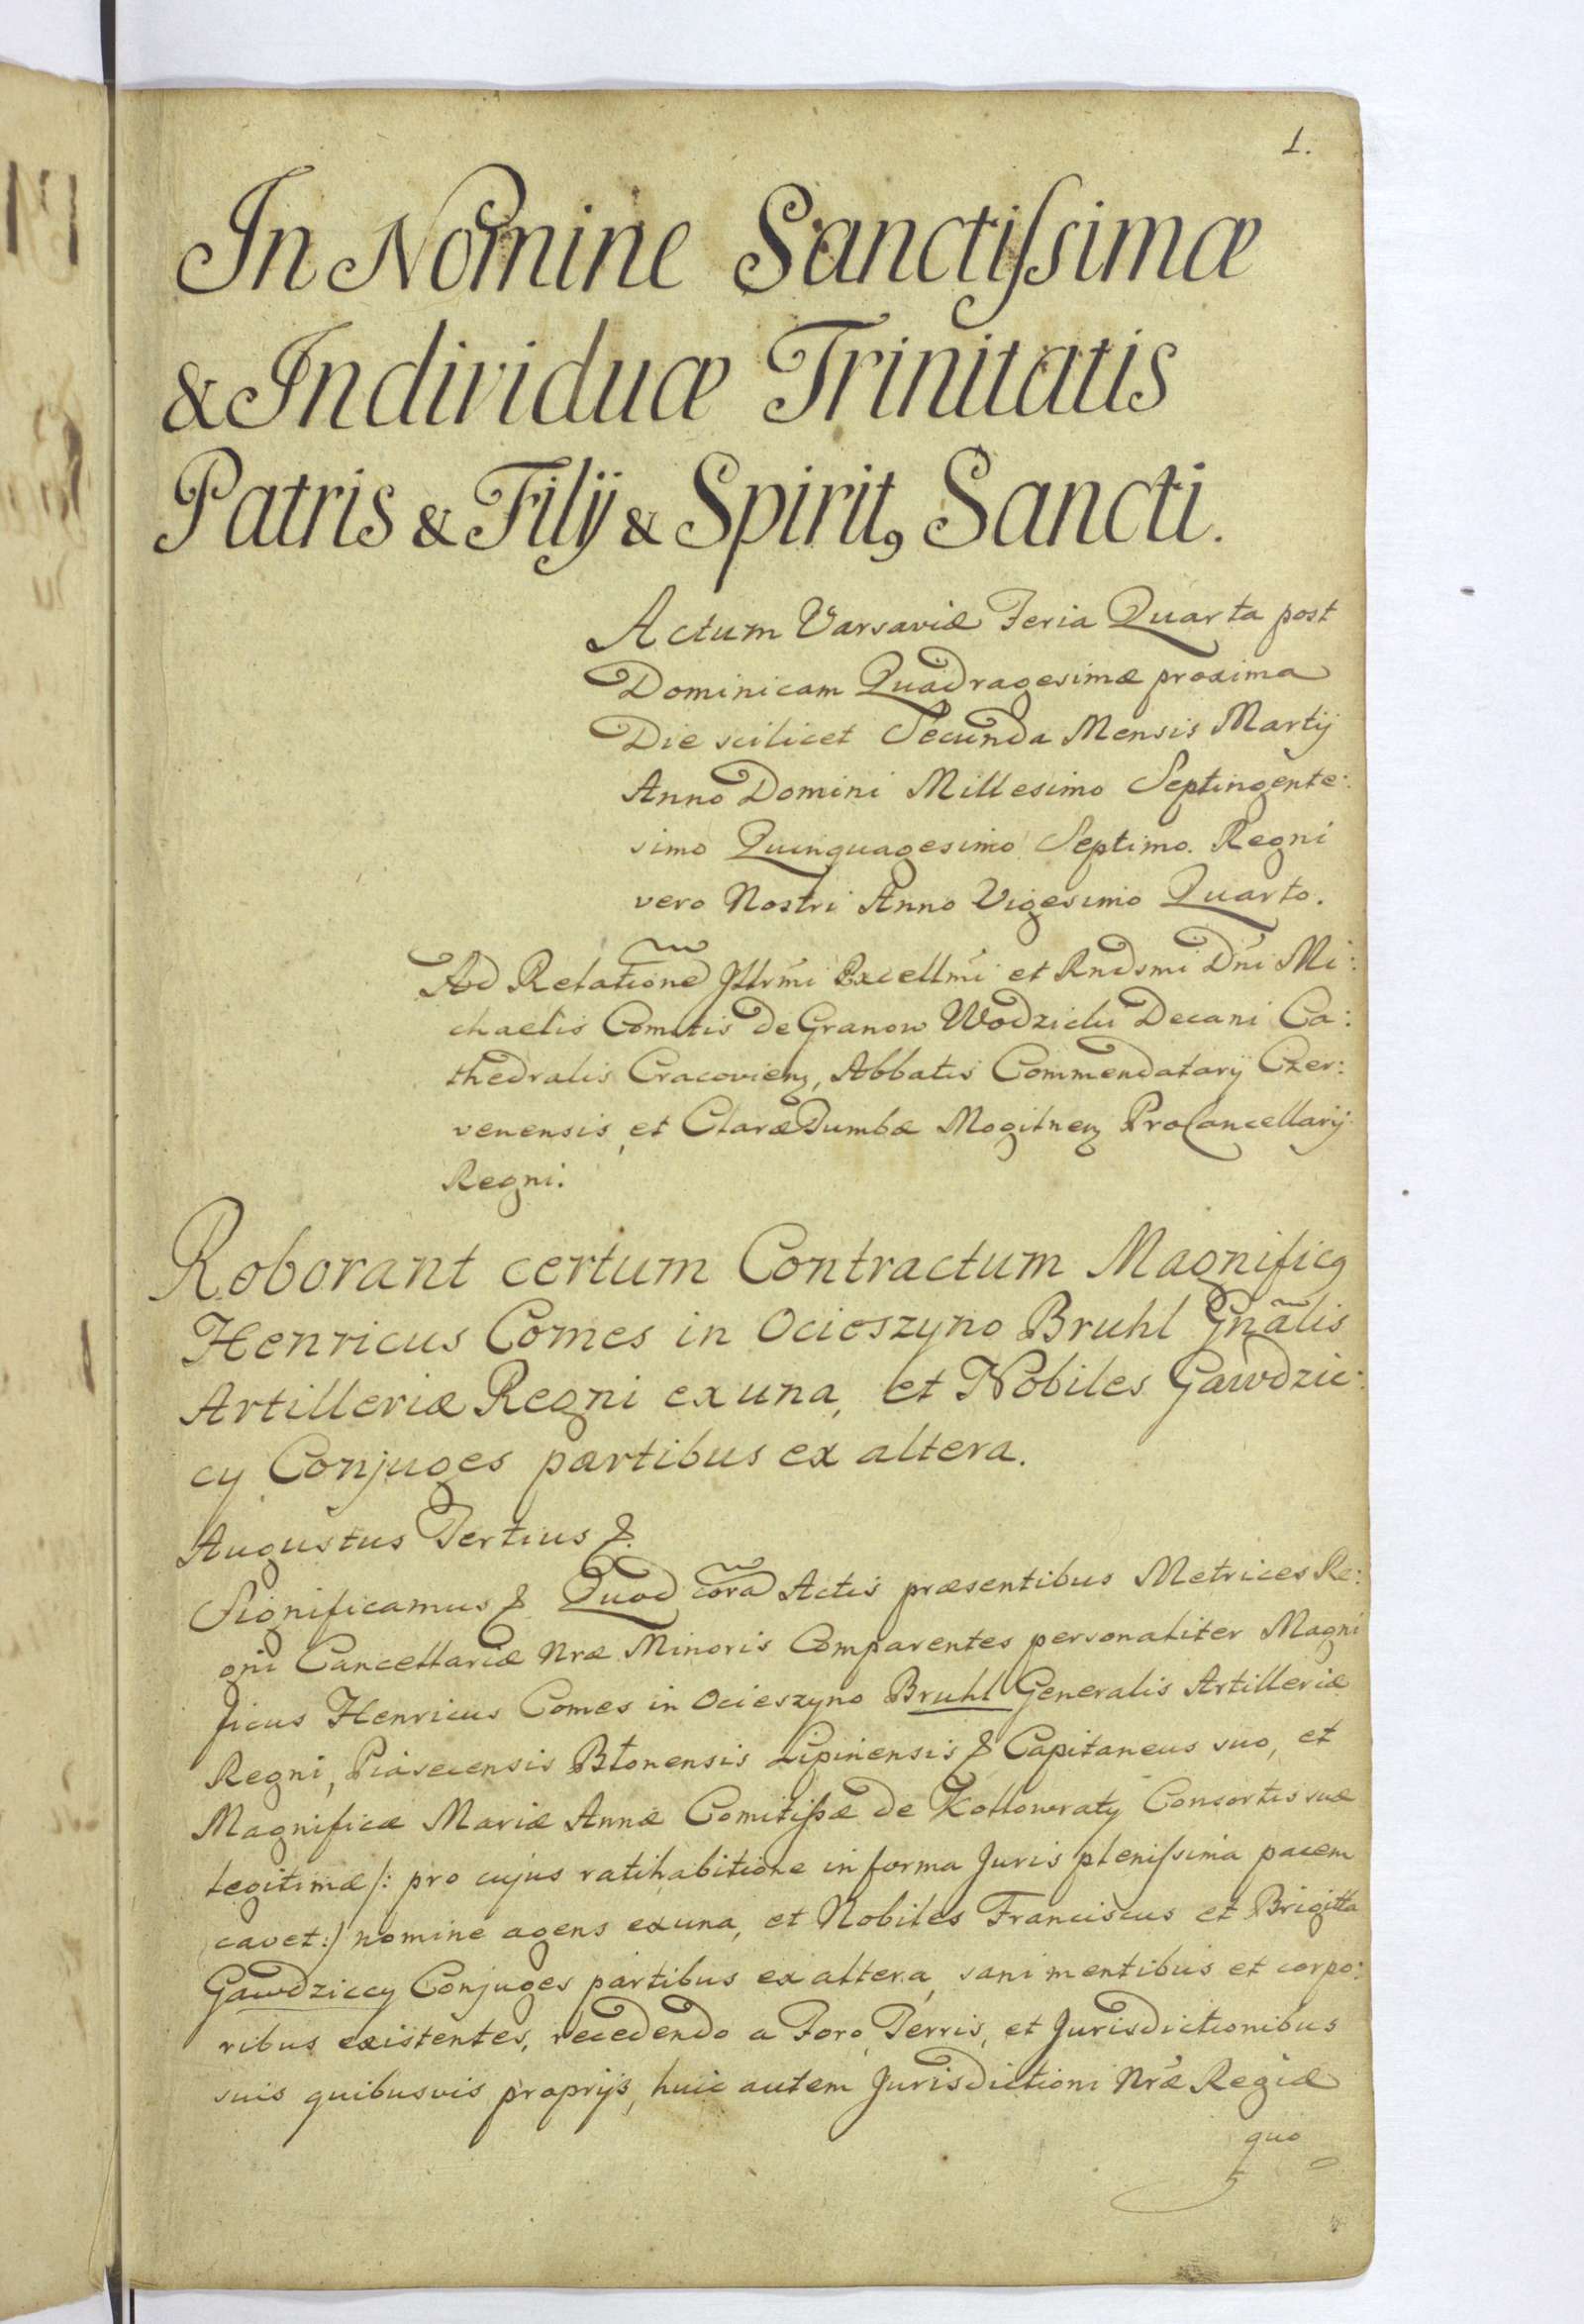 1.
In Nomine Sanctiſsimæ
& Individuæ Trinitatis
Patris & Filij & Spirit9 Sancti.
Actum Varsaviæ Feria Quarta post
Dominicam Quadragesimæ proxima
Die scilicet Secunda Mensis Martij
Anno Domini Millesimo Septingente:
simo Quinquagesimo Septimo. Regni
vero Nostri Anno Vigesimo Quarto.
Ad Relatione͠ Jllrmi Excellmi et Rndsmi Dni Mi:
chaelis Comitis de Granow Wodzicki Decani Ca:
thedralis Cracovienꝫ, Abbatis Commendatarij Czer:
venensis, et Claræ Tumbæ Mogilneꝫ ProCancellarij
Regni.
Roborant certum Contractum Magnific9
Henricus Comes in Ocieszyno Bruhl Gn͠alis
Artilleriæ Regni ex una, et Nobiles Gawdzic:
cy Conjuges partibus ex altera.
Augustus Tertius &.
Significamus & Quod cora͠ Actis præsentibus Metrices Re:
gni Cancellariæ Nræ Minoris Comparentes personaliter Magni
ficus Henricus Comes in Ocieszyno Bruhl Generalis Artilleriæ
Regni, Piasecensis Błonensis Lipinensis & Capitaneus suo, et
Magnificæ Mariæ Annæ Comitiſsæ de Kollowraty Consortis suæ
legitimæ /: pro cujus ratihabitione in forma Juris pleniſsima pacem
cavet :/ nomine agens ex una, et Nobiles Franciscus et Brigitta
Gawdziccy Conjuges partibus ex altera, sani mentibus et corpo:
ribus existentes, recedendo a Foro, Terris, et Jurisdictionibus
suis quibusvis proprijs, huic autem Jurisdictioni Nræ Regiæ
quo